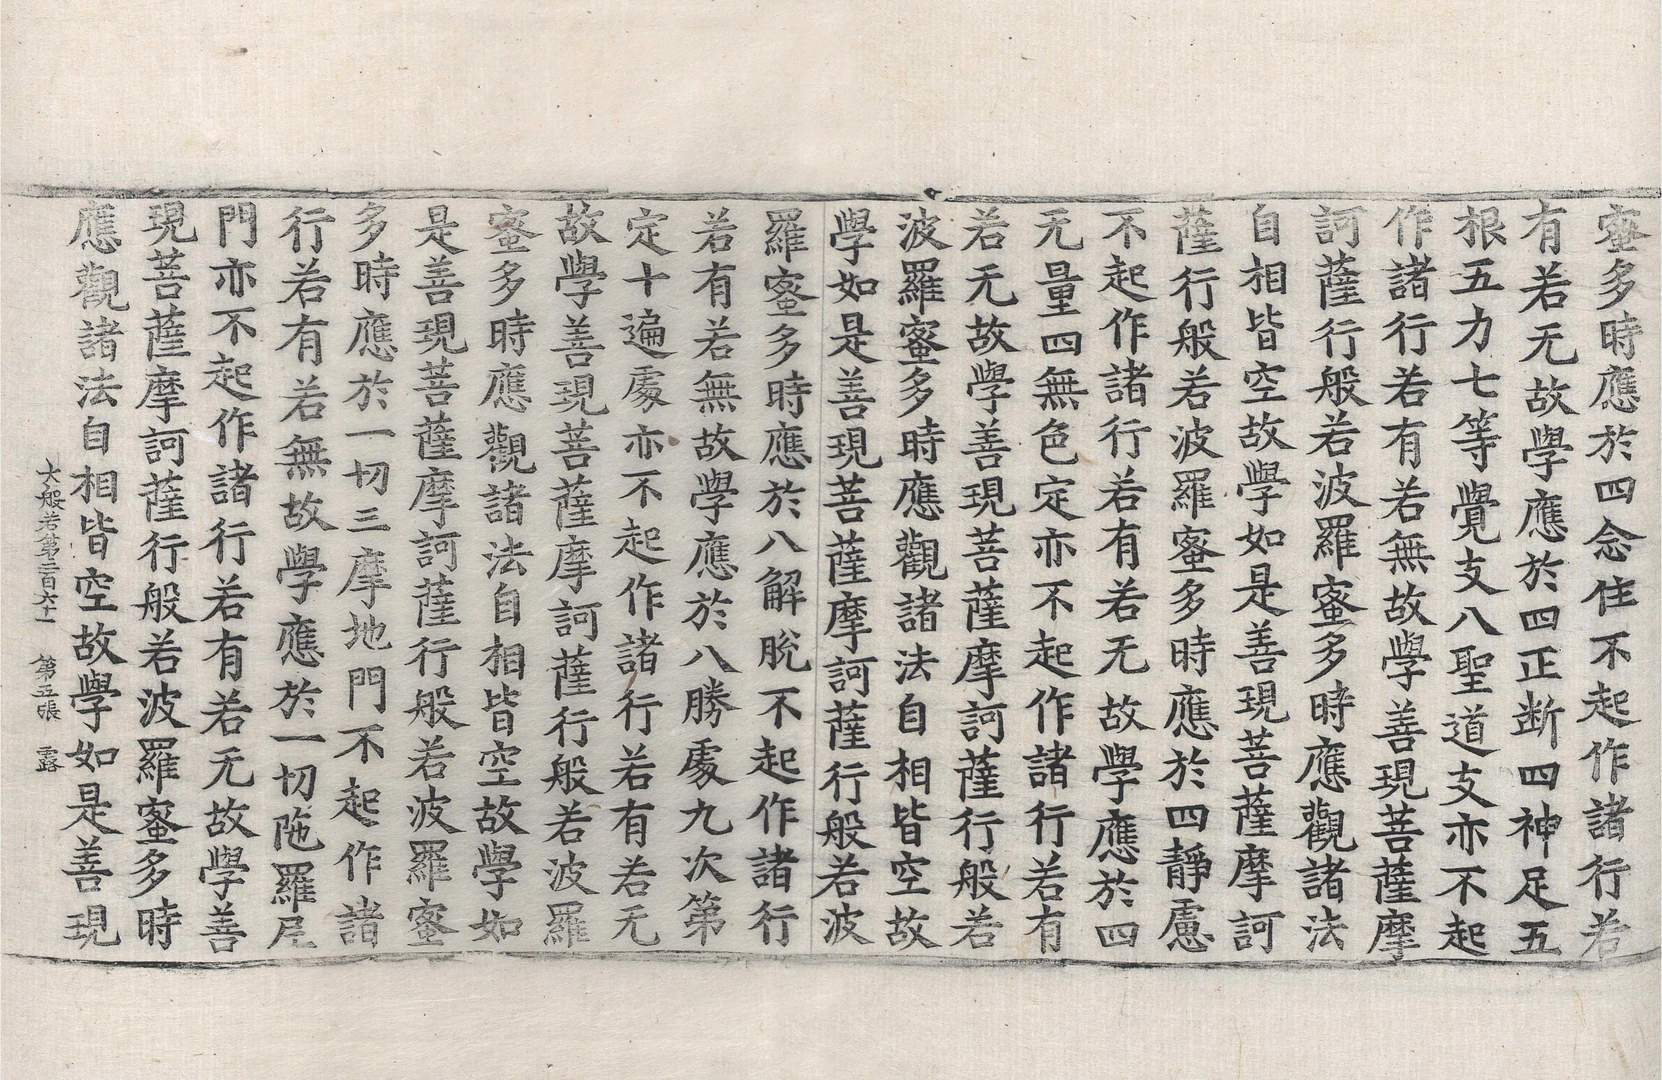 蜜多時應於四念住不起作諸行若
有若无故學應於四正断四神足五
根五力七等覺支八聖道支亦不起
作諸行若有若無故學善現菩薩摩
訶薩行般若波羅蜜多時應觀諸法
自相皆空故學如是善現菩薩摩訶
薩行般若波羅蜜多時應於四靜慮
不起作諸行若有若无故學應於四
无量四無色定亦不起作諸行若有
若无故學善現菩薩摩訶薩行般若
波羅蜜多時應觀諸法自相皆空故
學如是善現菩薩摩訶薩行般若波
羅蜜多時應於八解脫不起作諸行
若有若無故學應於八勝處九次第
定十遍處亦不起作諸行若有若无
故學善現菩薩摩訶薩行般若波羅
蜜多時應觀諸法自相皆空故學如
是善現菩薩摩訶薩行般若波羅蜜
多時應於一切三摩地門不起作諸
行若有若無故學應於一切陁羅尼
門亦不起作諸行若有若无故學善
現菩薩摩訶薩行般若波羅蜜多時
應觀諸法自相皆空故學如是善現
大般若第三百六十一 第五張 露